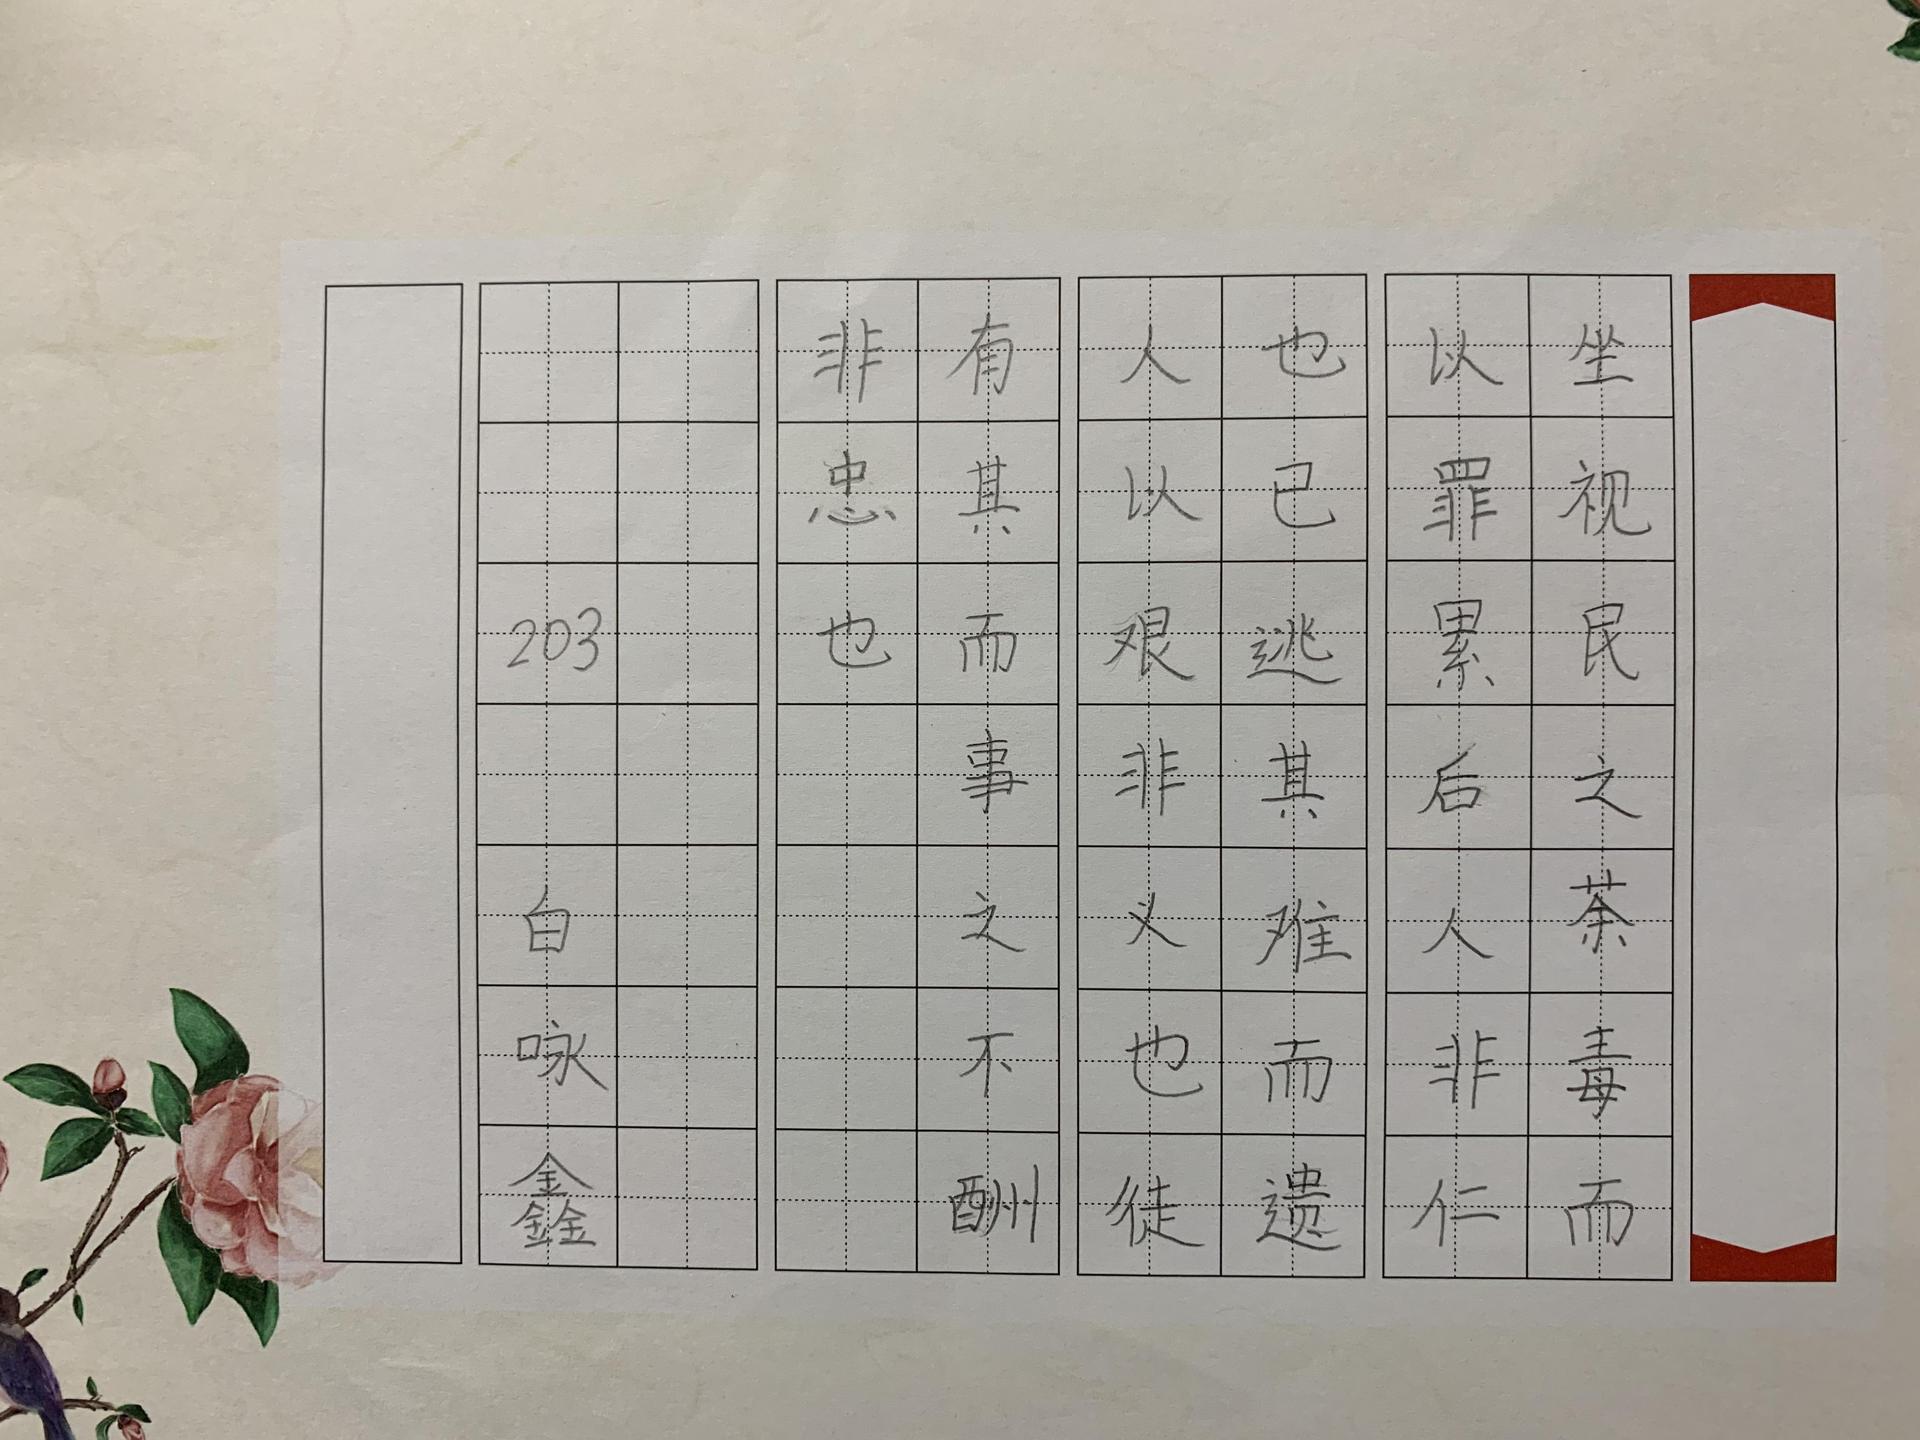 坐视民之荼毒而
以罪累后人非仁
也已逃其难而遗
人以艰非义也徒
有其而事之不酬
非忠也
203 白咏鑫